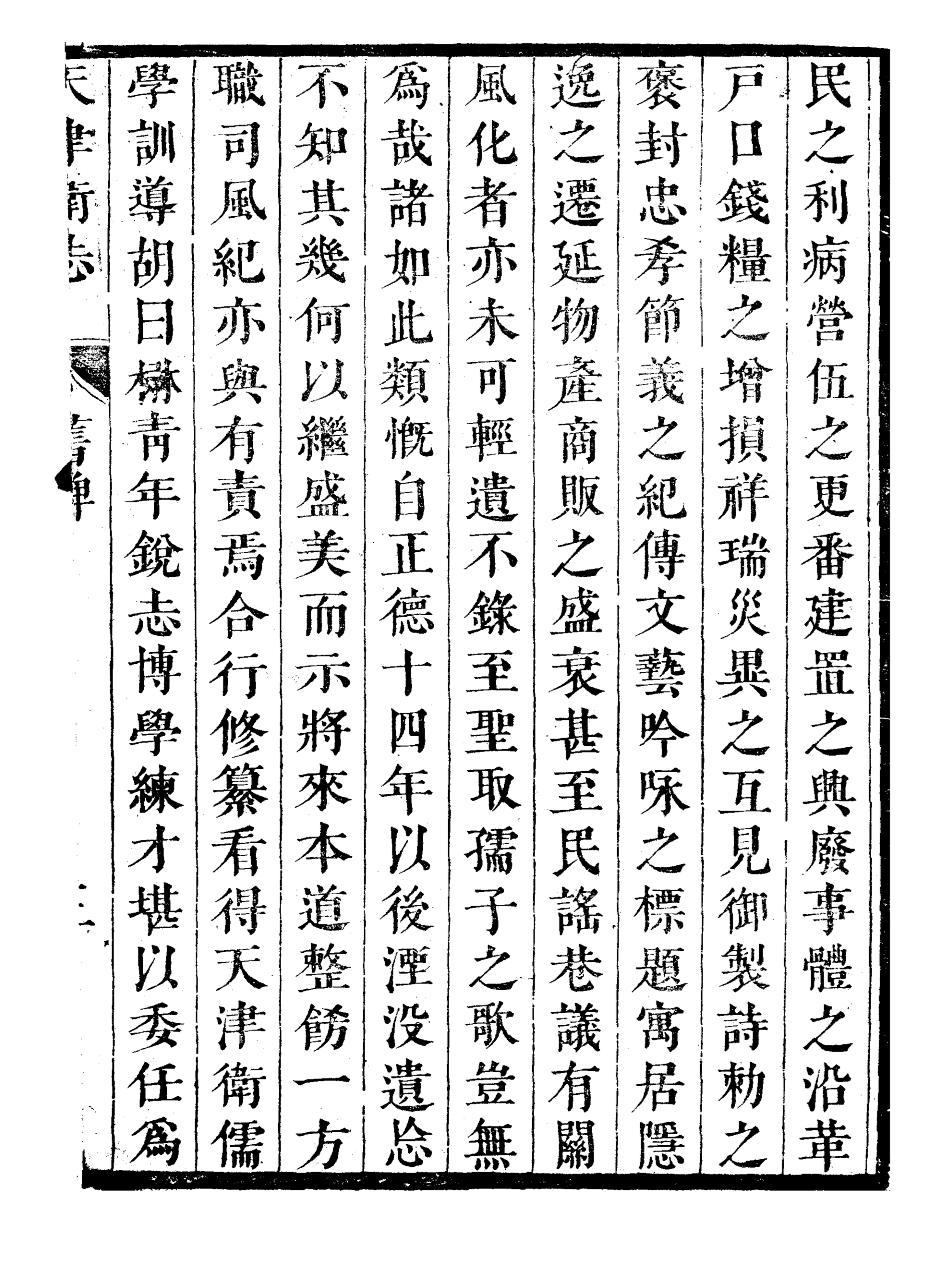 民之利病營伍之更番建置之興廢事體之沿革
戸口錢糧之增損祥瑞災異之互見御製詩勅之
褒封忠孝節義之紀傳文藝吟咏之標題寓居隱
逸之遷延物產商販之盛衰甚至民謠巷議有關
風化者亦未可輕遺不錄至聖取孺子之歌豈無
爲哉諸如此類慨自正德十四年以後湮没遺忘
不知其幾何以繼盛美而示將來本道整飭一方
職司風紀亦與有責焉合行修纂看得天津衛儒
學訓導胡曰楙青年銳志博學練才堪以委任爲
天津衛志
舊碑